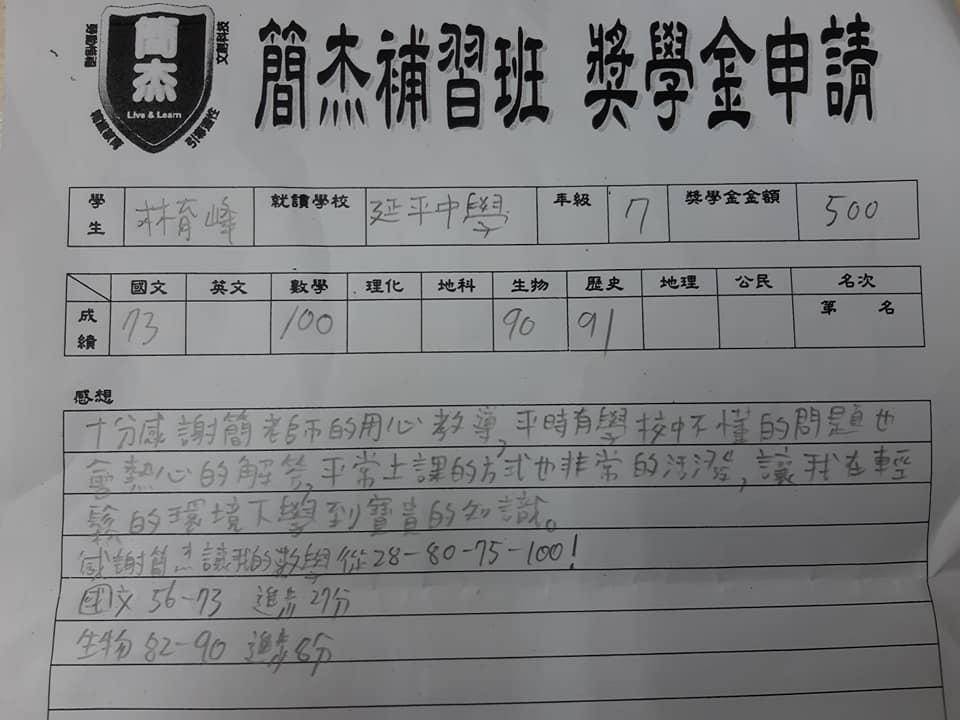 簡杰
Live & Learn
簡杰補習班 獎學金申請
學生 林育峰 就讀學校 延平中學 年級 7 獎學金金額 500
國文 英文 數學 理化 地科 生物 歷史 地理 公民 名次
成績 73 100 90 91 第 名
感想
十分感謝簡老師的用心教導,平時有學校中不懂的問題也
會熱心的解答,平常上課的方式也非常的活潑,讓我在輕
鬆的環境下學到寶貴的知識。
感謝簡杰讓我的數學從28-80-75-100!
國文 56-73 進步27分
生物 82-90 進步8分